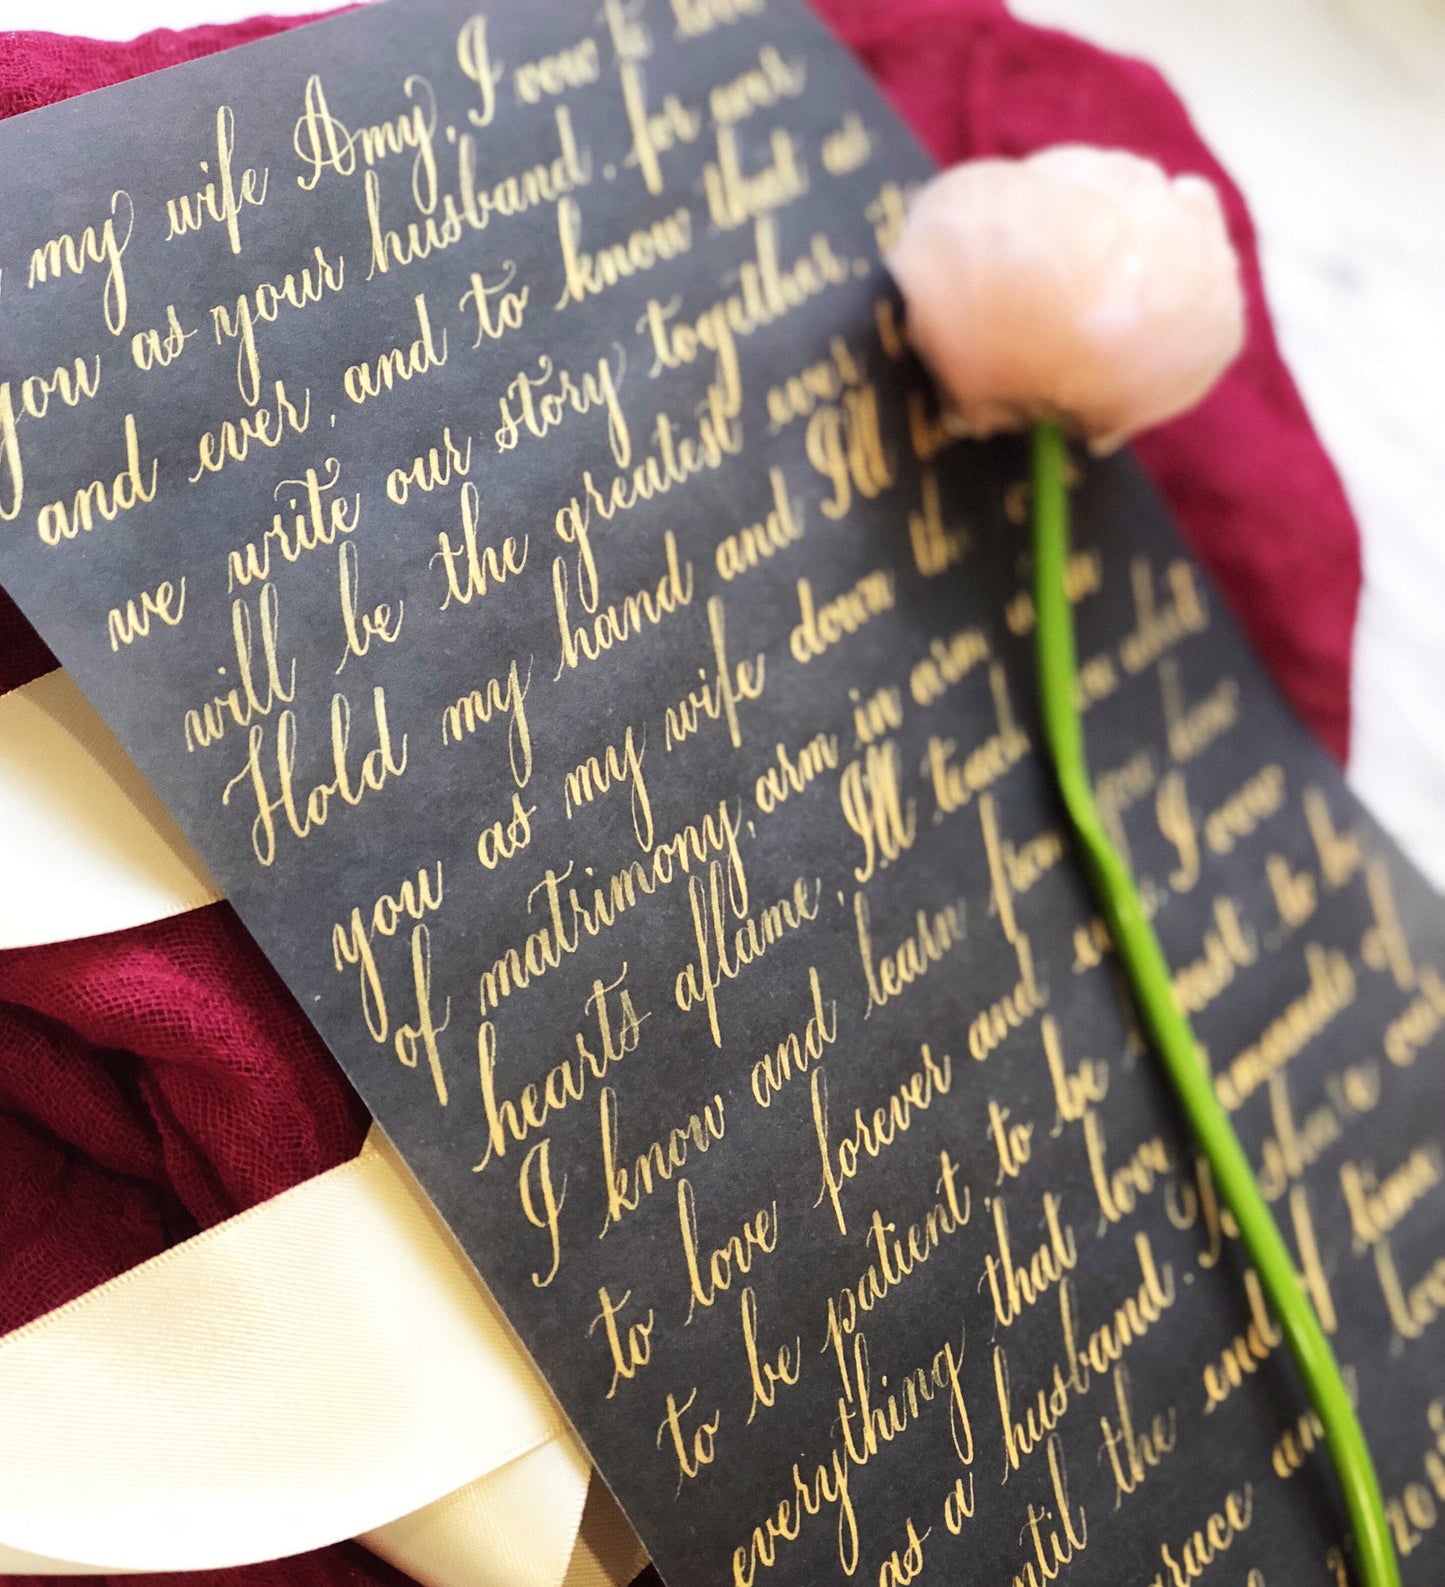 my wife Amy, I vow to love
you as your husband, for ever
and ever, and to know that as
we write our story together, it
will be the greatest ever
Hold my hand and I'll
you as my wife down the
of matrimony, arm in arm
hearts aflame, I'll teach you what
I know and learn from you how
to love forever and ever. I vow
to be patient, to be to be
everything that love of
as a husband.
until the end of time
grace and